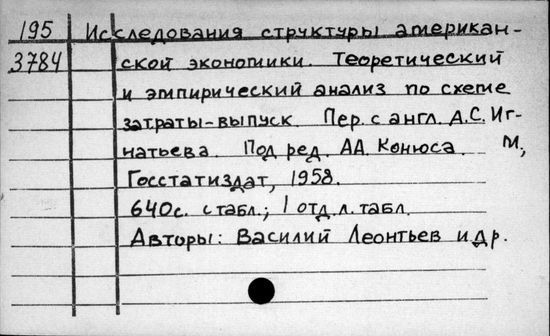 195 Исследования структуры американ-
3784 ской экономики. Теоретический
и эмпирический анализ по схеме
затраты-выпуск. Пер. с англ. А.С. Иг-
натьева. Под ред. А.А. Конюса. М.,
Госстатиздат, 1958.
640с. с табл.; 1 отд. л. табл.
Авторы: Василий Леонтьев и др.